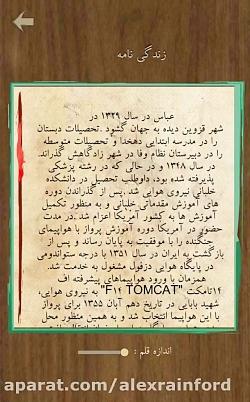 زندگی نامه
عباس در سال ۱۳۲۹ در
شهر قزوین دیده به جهان گشود .تحصیلات دبستان
را در مدرسه ابتدایی دهخدا و تحصیلات متوسطه
را در دبیرستان نظام وفا در شهر زادگاهش گذراند.
در سال ۱۳۴۸ و در حالی که در رشته پزشکی
پذیرفته شده بود، داوطلب تحصیل در دانشکده
خلبانی نیروی هوایی شد .پس از گذراندن دوره
آموزش های مقدماتی خلبانی و به منظور تکمیل
آموزش ها به کشور آمریکا اعزام شد .در مدت
حضور در آمریکا دوره آموزش پرواز با هواپیمای
جنگنده را با موفقیت به پایان رساند و پس از
بازگشت به ایران در سال ۱۳۵۱ با درجه ستواندومی
در پایگاه هوایی دزفول مشغول به خدمت شد.
همزمان با ورود هواپیماهای پیشرفته اف
۱۴تامکت "F۱۴ TOMCAT" به نیروی هوایی،
شهید بابایی در تاریخ دهم آبان ۱۳۵۵ برای پرواز
با این هواپیما انتخاب شد و به همین منظور محل
اندازه قلم :
aparat.com/alexrainford